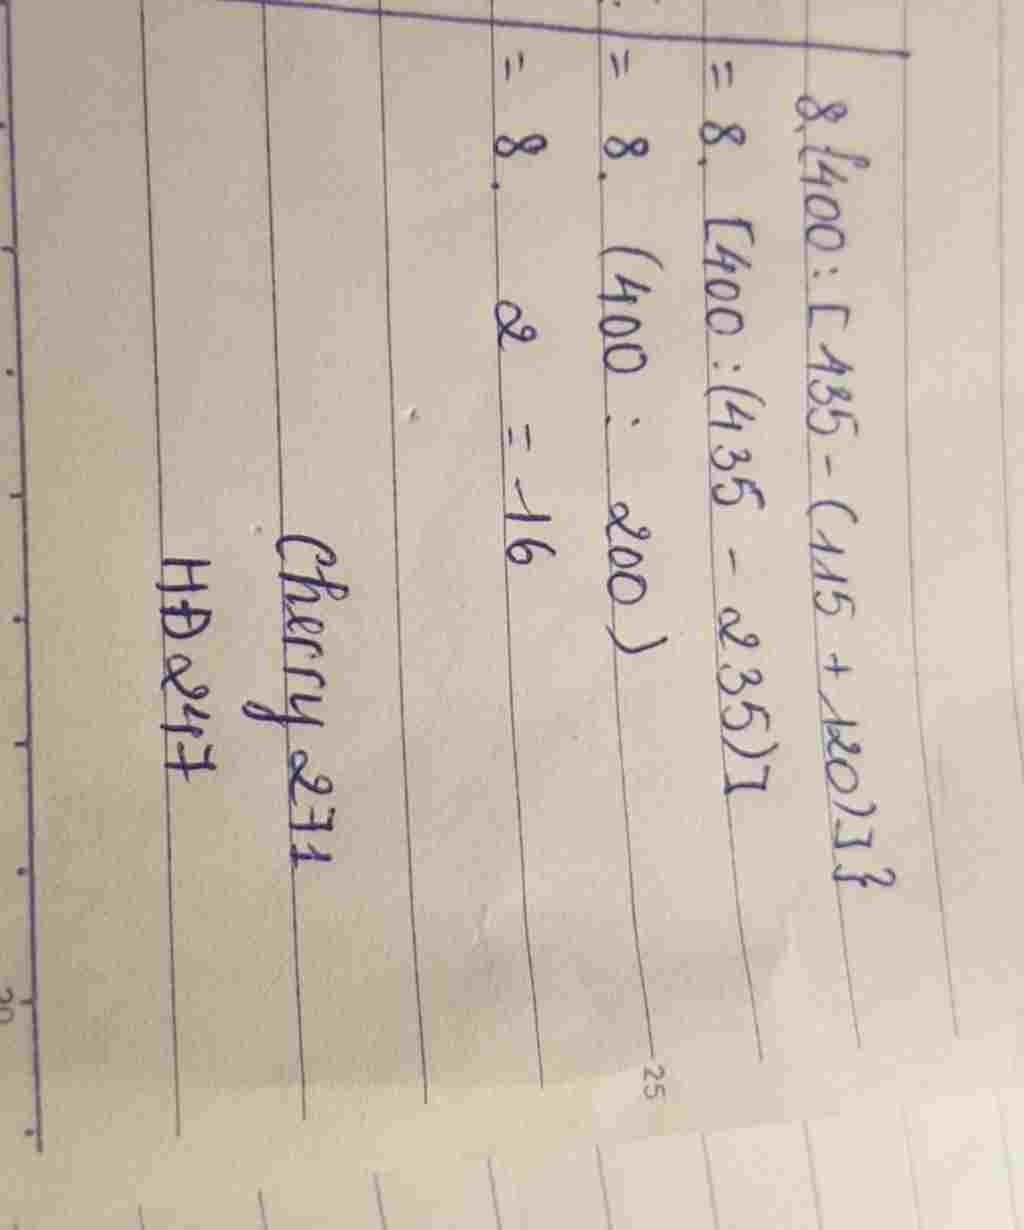 8.{400:[435-(115+120)]}
= 8. [400:(435 - 235)]
= 8. (400 : 200)
= 8. 2 = 16
Cherry 271
HĐ247
25
20